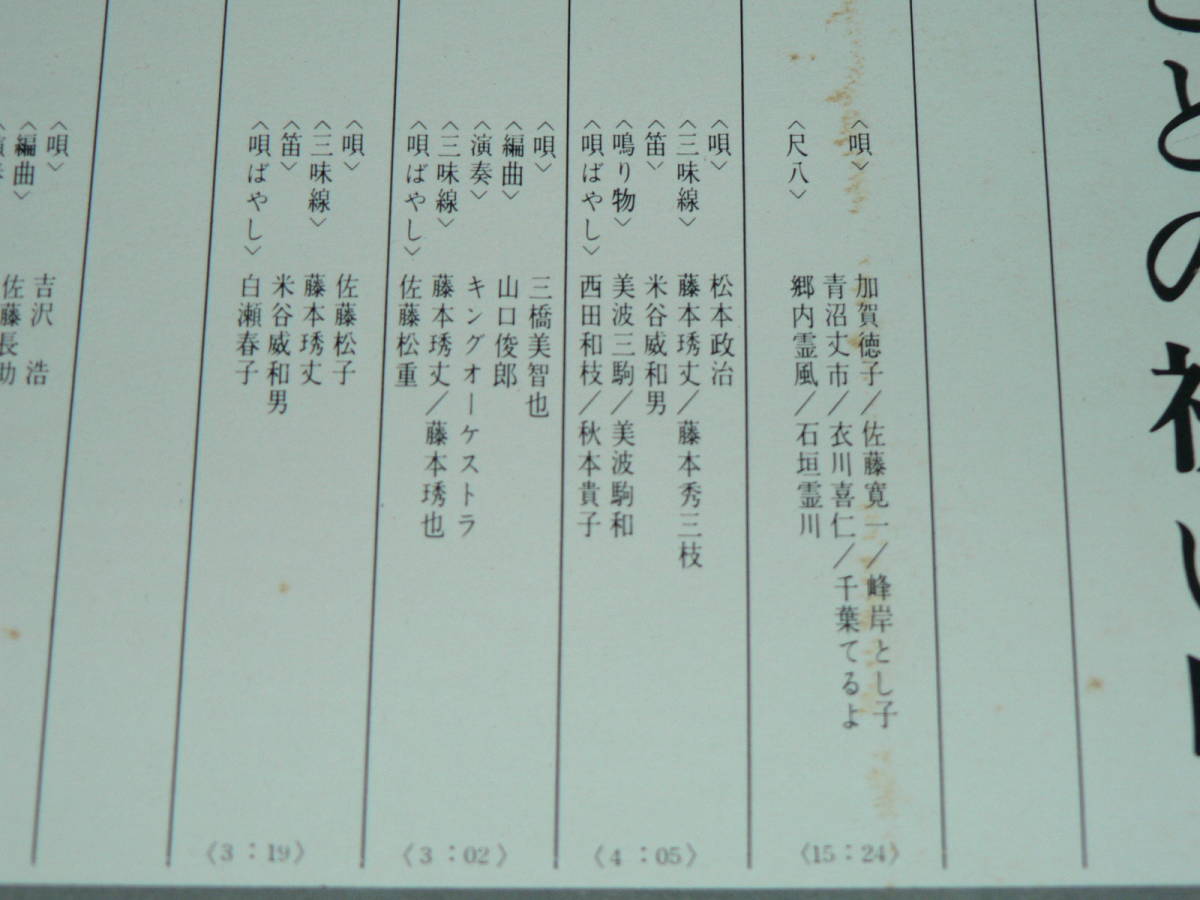 との祝い
〈唄〉 加賀徳子／佐藤寛一／峰岸とし子
青沼丈市／衣川喜仁／千葉てるよ
〈尺八〉 郷内霊風／石垣霊川
〈15：24〉
〈唄〉 松本政治
〈三味線〉 藤本琇丈／藤本秀三枝
〈笛〉 米谷威和男
〈鳴り物〉 美波三駒／美波駒和
〈唄ばやし〉 西田和枝／秋本貴子
〈4：05〉
〈唄〉 三橋美智也
〈編曲〉 山口俊郎
〈演奏〉 キングオーケストラ
〈三味線〉 藤本琇丈／藤本琇也
〈唄ばやし〉 佐藤松重
〈3：02〉
〈唄〉 佐藤松子
〈三味線〉 藤本琇丈
〈笛〉 米谷威和男
〈唄ばやし〉 白瀬春子
〈3：19〉
〈唄〉 吉沢 浩
〈編曲〉 佐藤長助